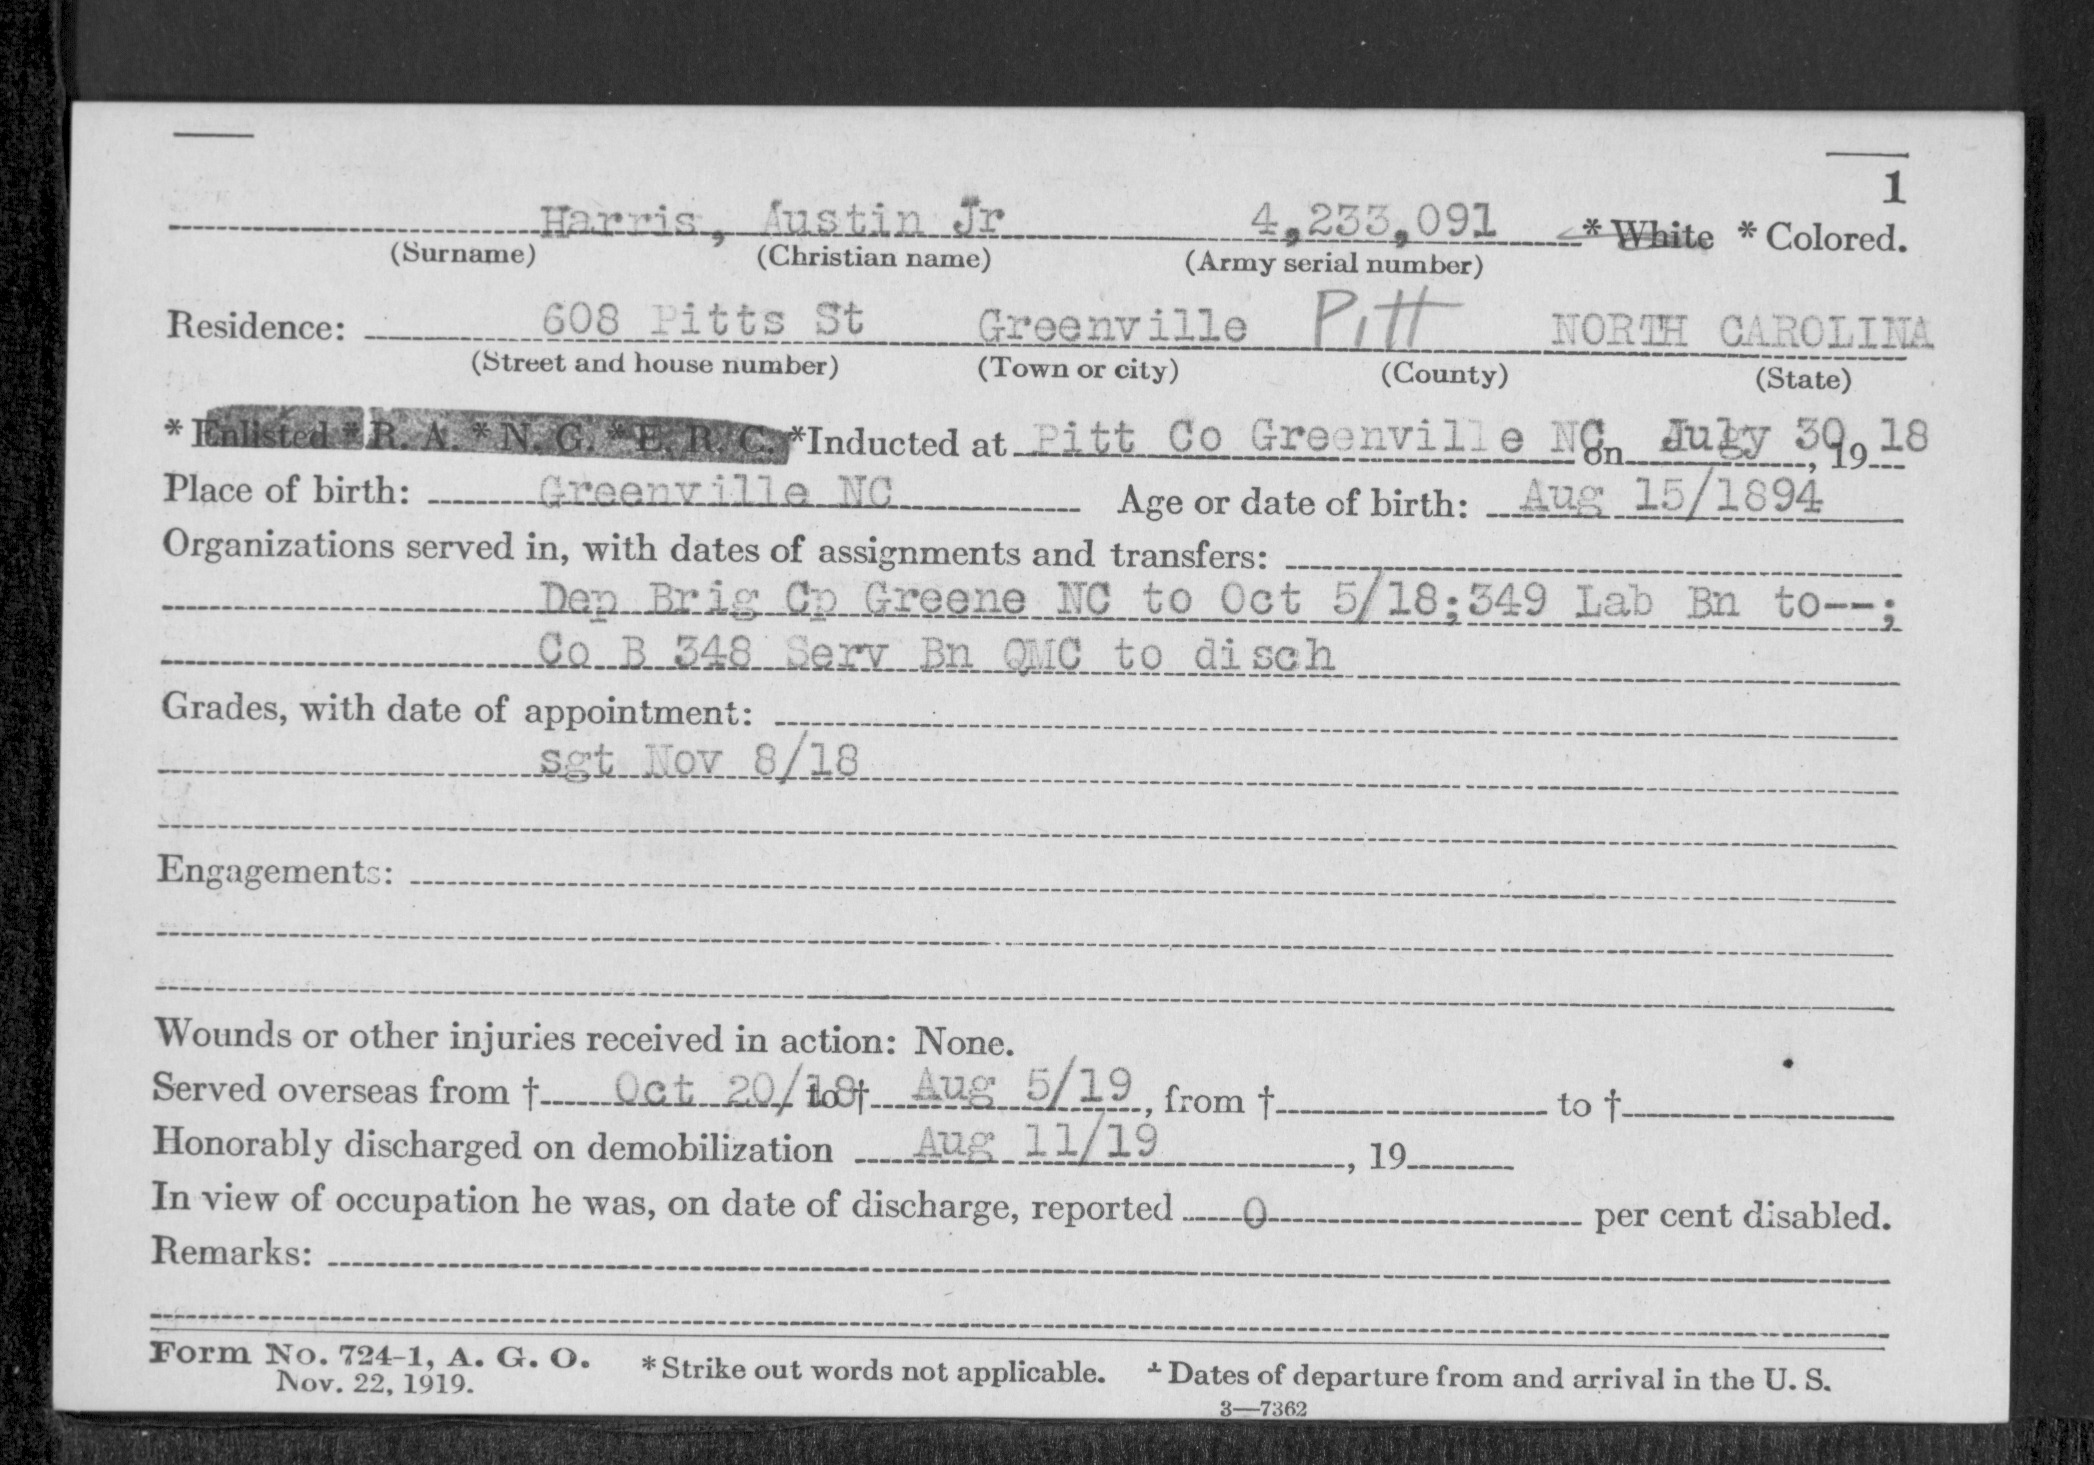 1
Harris, Austin Jr 4,233,091 * White * Colored.
(Surname) (Christian name) (Army serial number)
Residence: 608 Pitts St Greenville Pitt NORTH CAROLINA
(Street and house number) (Town or city) (County) (State)
* Enlisted * R. A. * N. G. * E. R. C. *Inducted at Pitt Co Greenville NC on July 30, 19 18
Place of birth: Greenville NC Age or date of birth: Aug 15/1894
Organizations served in, with dates of assignments and transfers:
Dep Brig Cp Greene NC to Oct 5/18;349 Lab Bn to--;
Co B 348 Serv Bn QMC to disch
Grades, with date of appointment:
sgt Nov 8/18
Engagements:
Wounds or other injuries received in action: None.
Served overseas from † Oct 20/18 to † Aug 5/19, from † to †
Honorably discharged on demobilization Aug 11/19, 19
In view of occupation he was, on date of discharge, reported 0 per cent disabled.
Remarks:
Form No. 724-1, A. G. O. * Strike out words not applicable. † Dates of departure from and arrival in the U. S.
Nov. 22, 1919.
3—7362